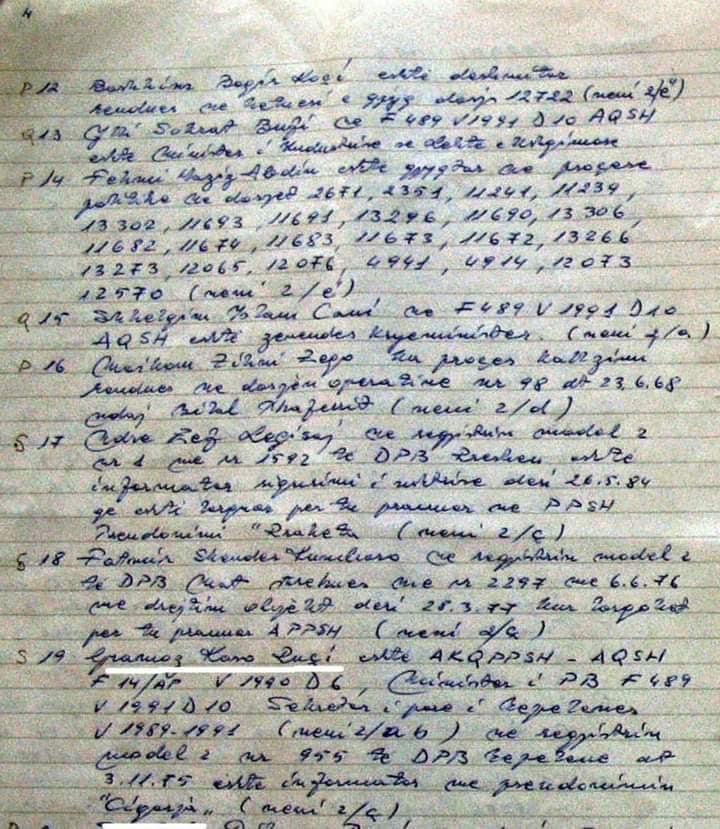 4
P 12 Bashkim Beqir Koçi është deshmitar
rendues ne hetuesi e gjyq dosje 12722 (neni 2/e)
Q 13 Ylli Sokrat Bufi ne F 489 V 1991 D 10 AQSH
është Minister i Industrise se Lehte e Ushqimore
P 14 Fehmi Abdiu është gjyqtar ne procese
politike ne dosjet 2671, 2351, 11241, 11239,
13302, 11693, 11691, 13296, 11690, 13306,
11682, 11674, 11683, 11673, 11672, 13266
13273, 12065, 12076, 4941, 4914, 12073
12570 (neni 2/e)
Q 15 Shkelqim Islam Cani ne F 489 V 1991 D 10
AQSH është zevendes kryeminister. (neni 2/a)
P 16 Maksim Zihni Zego ka proces kallzimi
rendues ne dosjen operative nr 98 dt 23.6.68
ndaj (neni 2/d)
S 17 Ndre Zef Legisi ne regjistrin model 2
nr 1 me nr 1592 te DPB Shkoder është
informator sigurimi i deri 26.5.84
qe është larguar per tu pranuar ne PPSH
Pseudonimi "Raketa (neni 2/ç)
S 18 Fatmir Skender Kumbaro ne regjistrin model 2
te DPB Mat rekrut me nr 2297 me 6.6.76
me drejtim objekt deri 28.3.77 kur largohet
per tu pranuar APPSH (neni 2/ç)
S 19 Gramoz Ruçi është AKQPPSH - AQSH
F 14/AP V 1990 D 6, Minister i PB F 489
V 1991 D 10 Sekretar i pare i Tepelenes
V 1989-1991 (neni 2/a b) ne regjistrin
model 2 nr 955 te DPB Tepelene dt
3.11.75 është informator me pseudonimin
"Cigarja" (neni 2/ç)